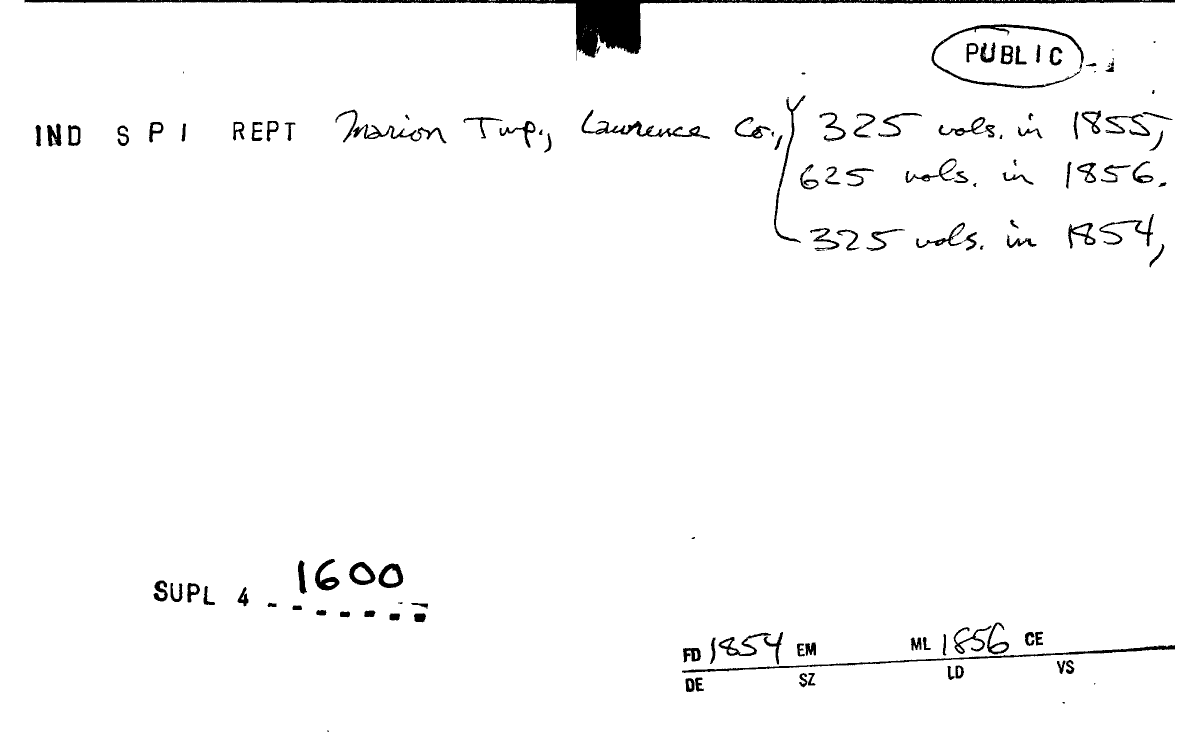 PUBLIC
IND S P I REPT Marion Twp., Lawrence Co., 325 vols. in 1855,
625 vols. in 1856.
325 vols. in 1854,
SUPL 4 1600
FD 1854 EM ML 1856 CE
DE SZ LD VS